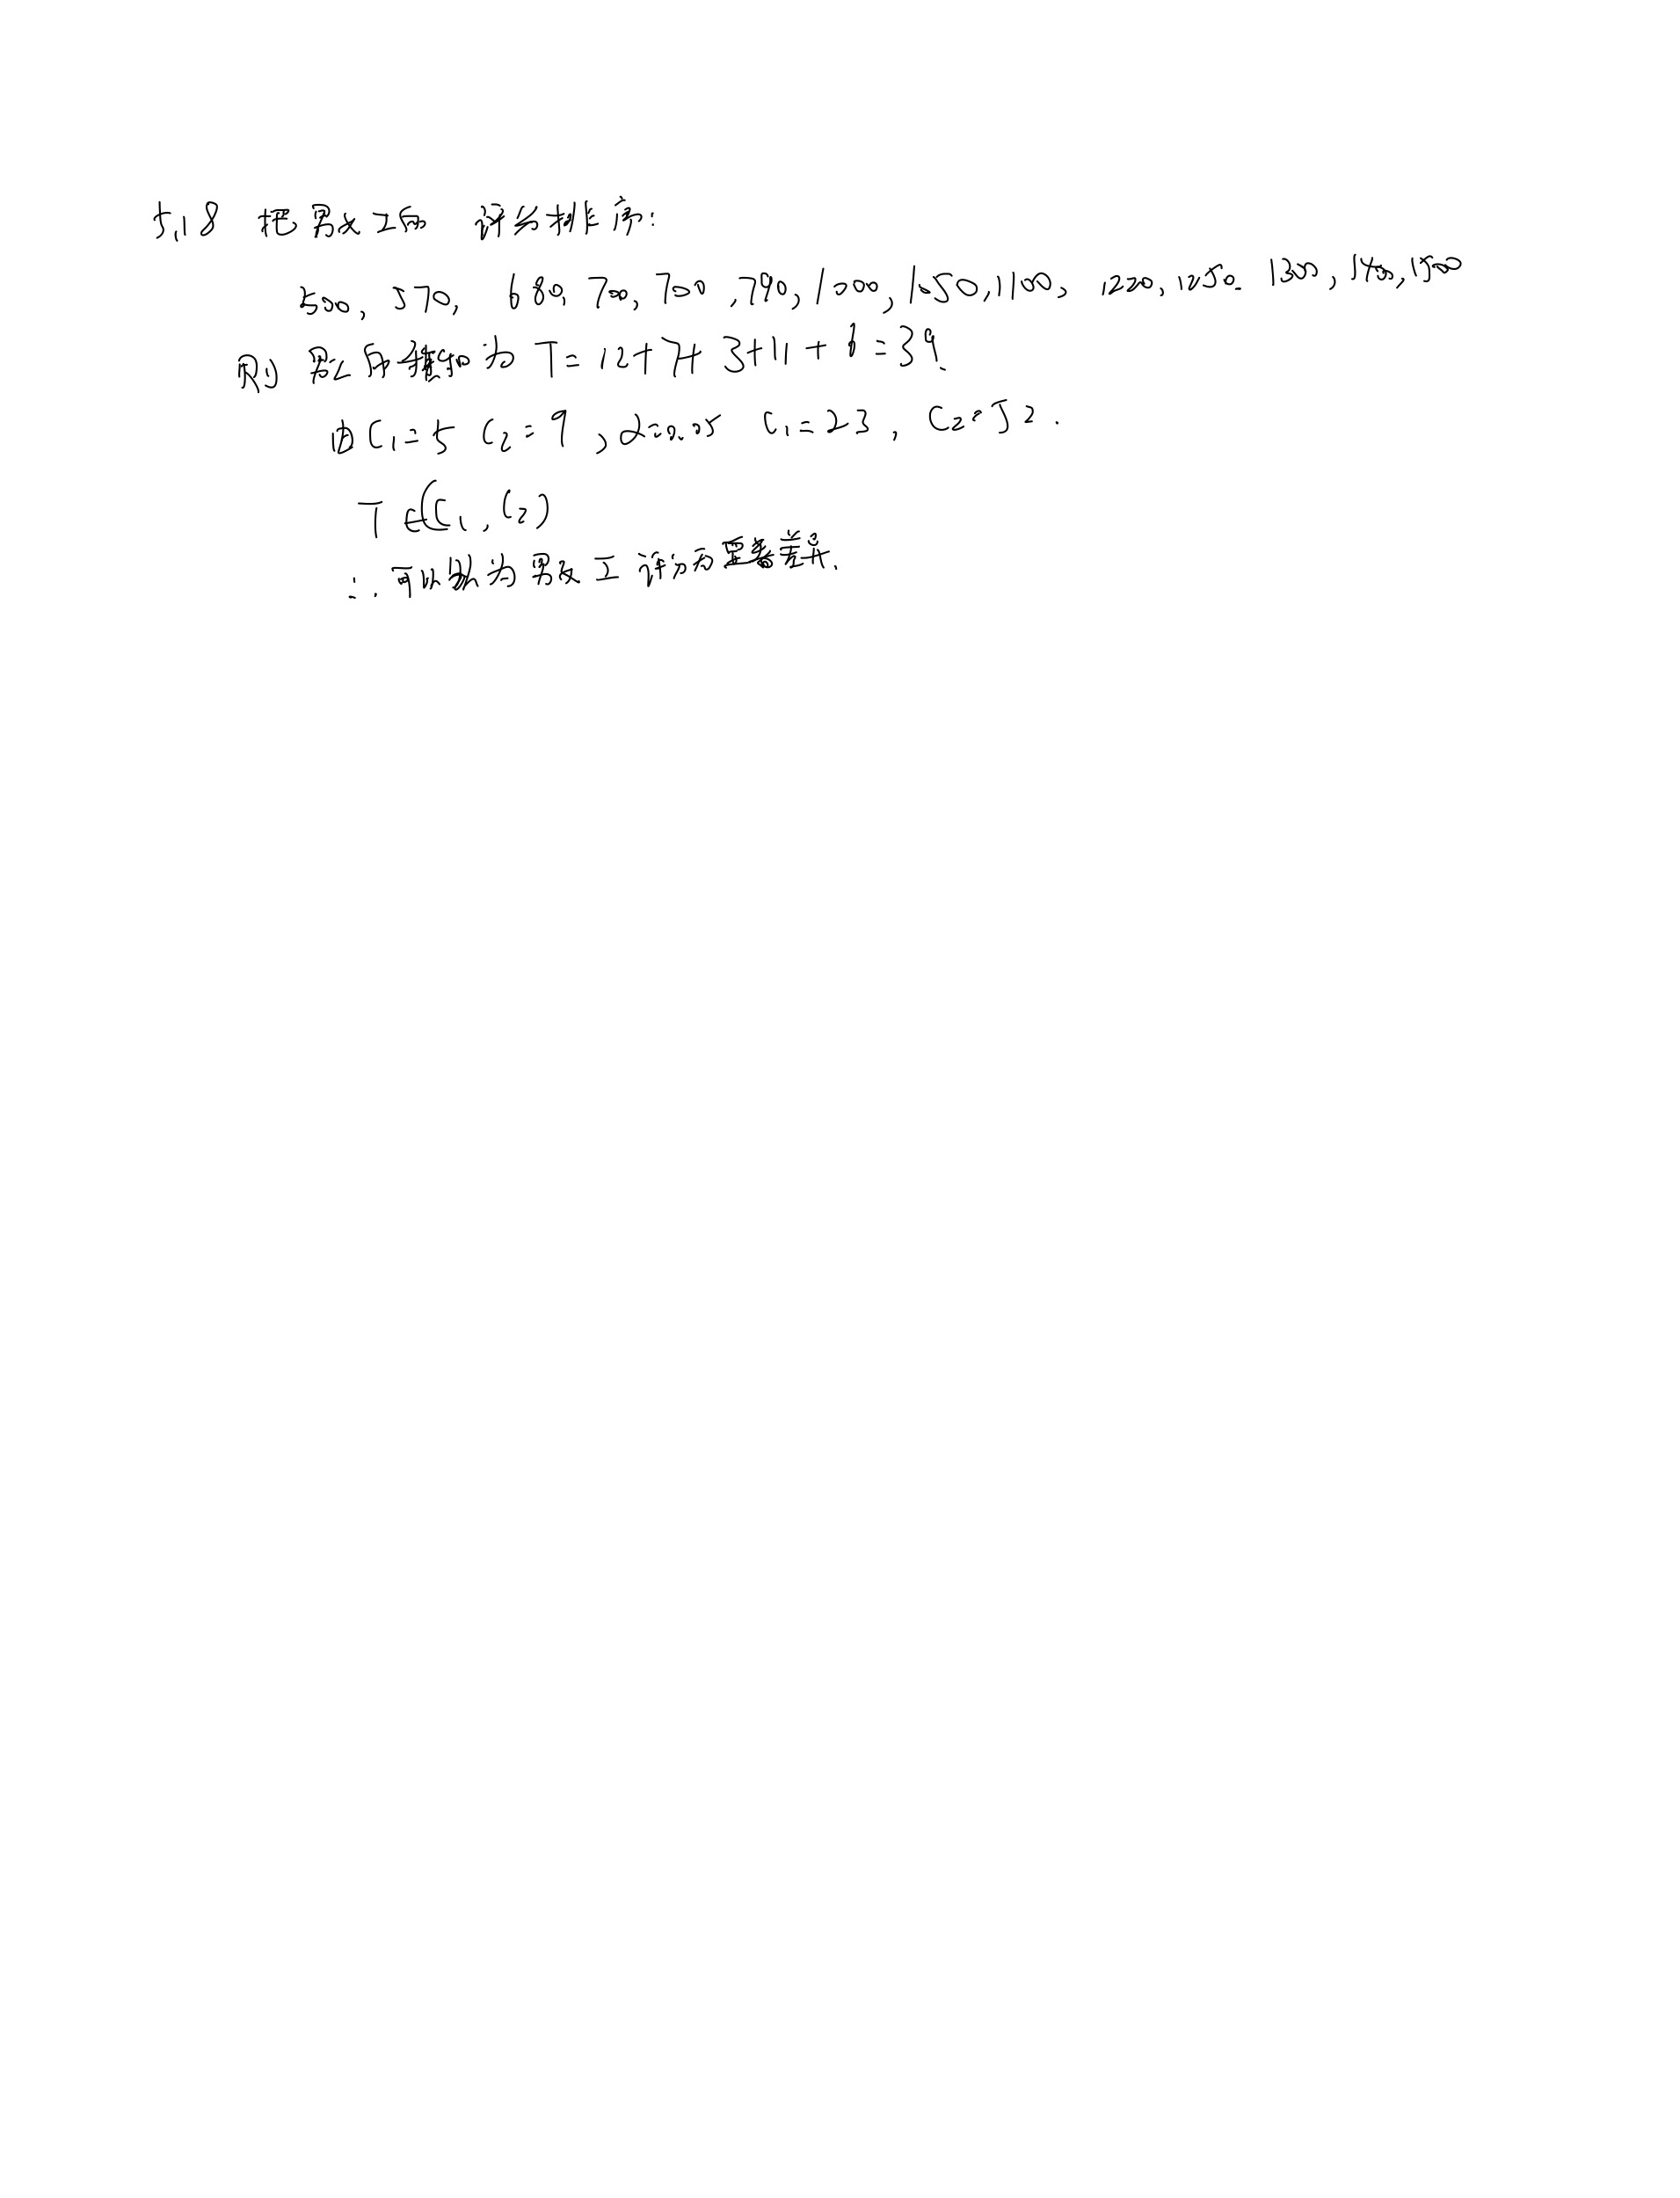 5.18 把男女工的 评分排序:
500, 570, 680, 700, 700, 790, 1000, 1050, 1100, 1220, 1250. 1300, 1400, 1500
则 男工 秩和为 T = 12+7+3+11+6 = 39.
由 C₁=5 C₂=9, α=0.05 C₁=23, C₂=52.
T ∈ (C₁, C₂)
∴ 可以认为男女工评分无显著差异.